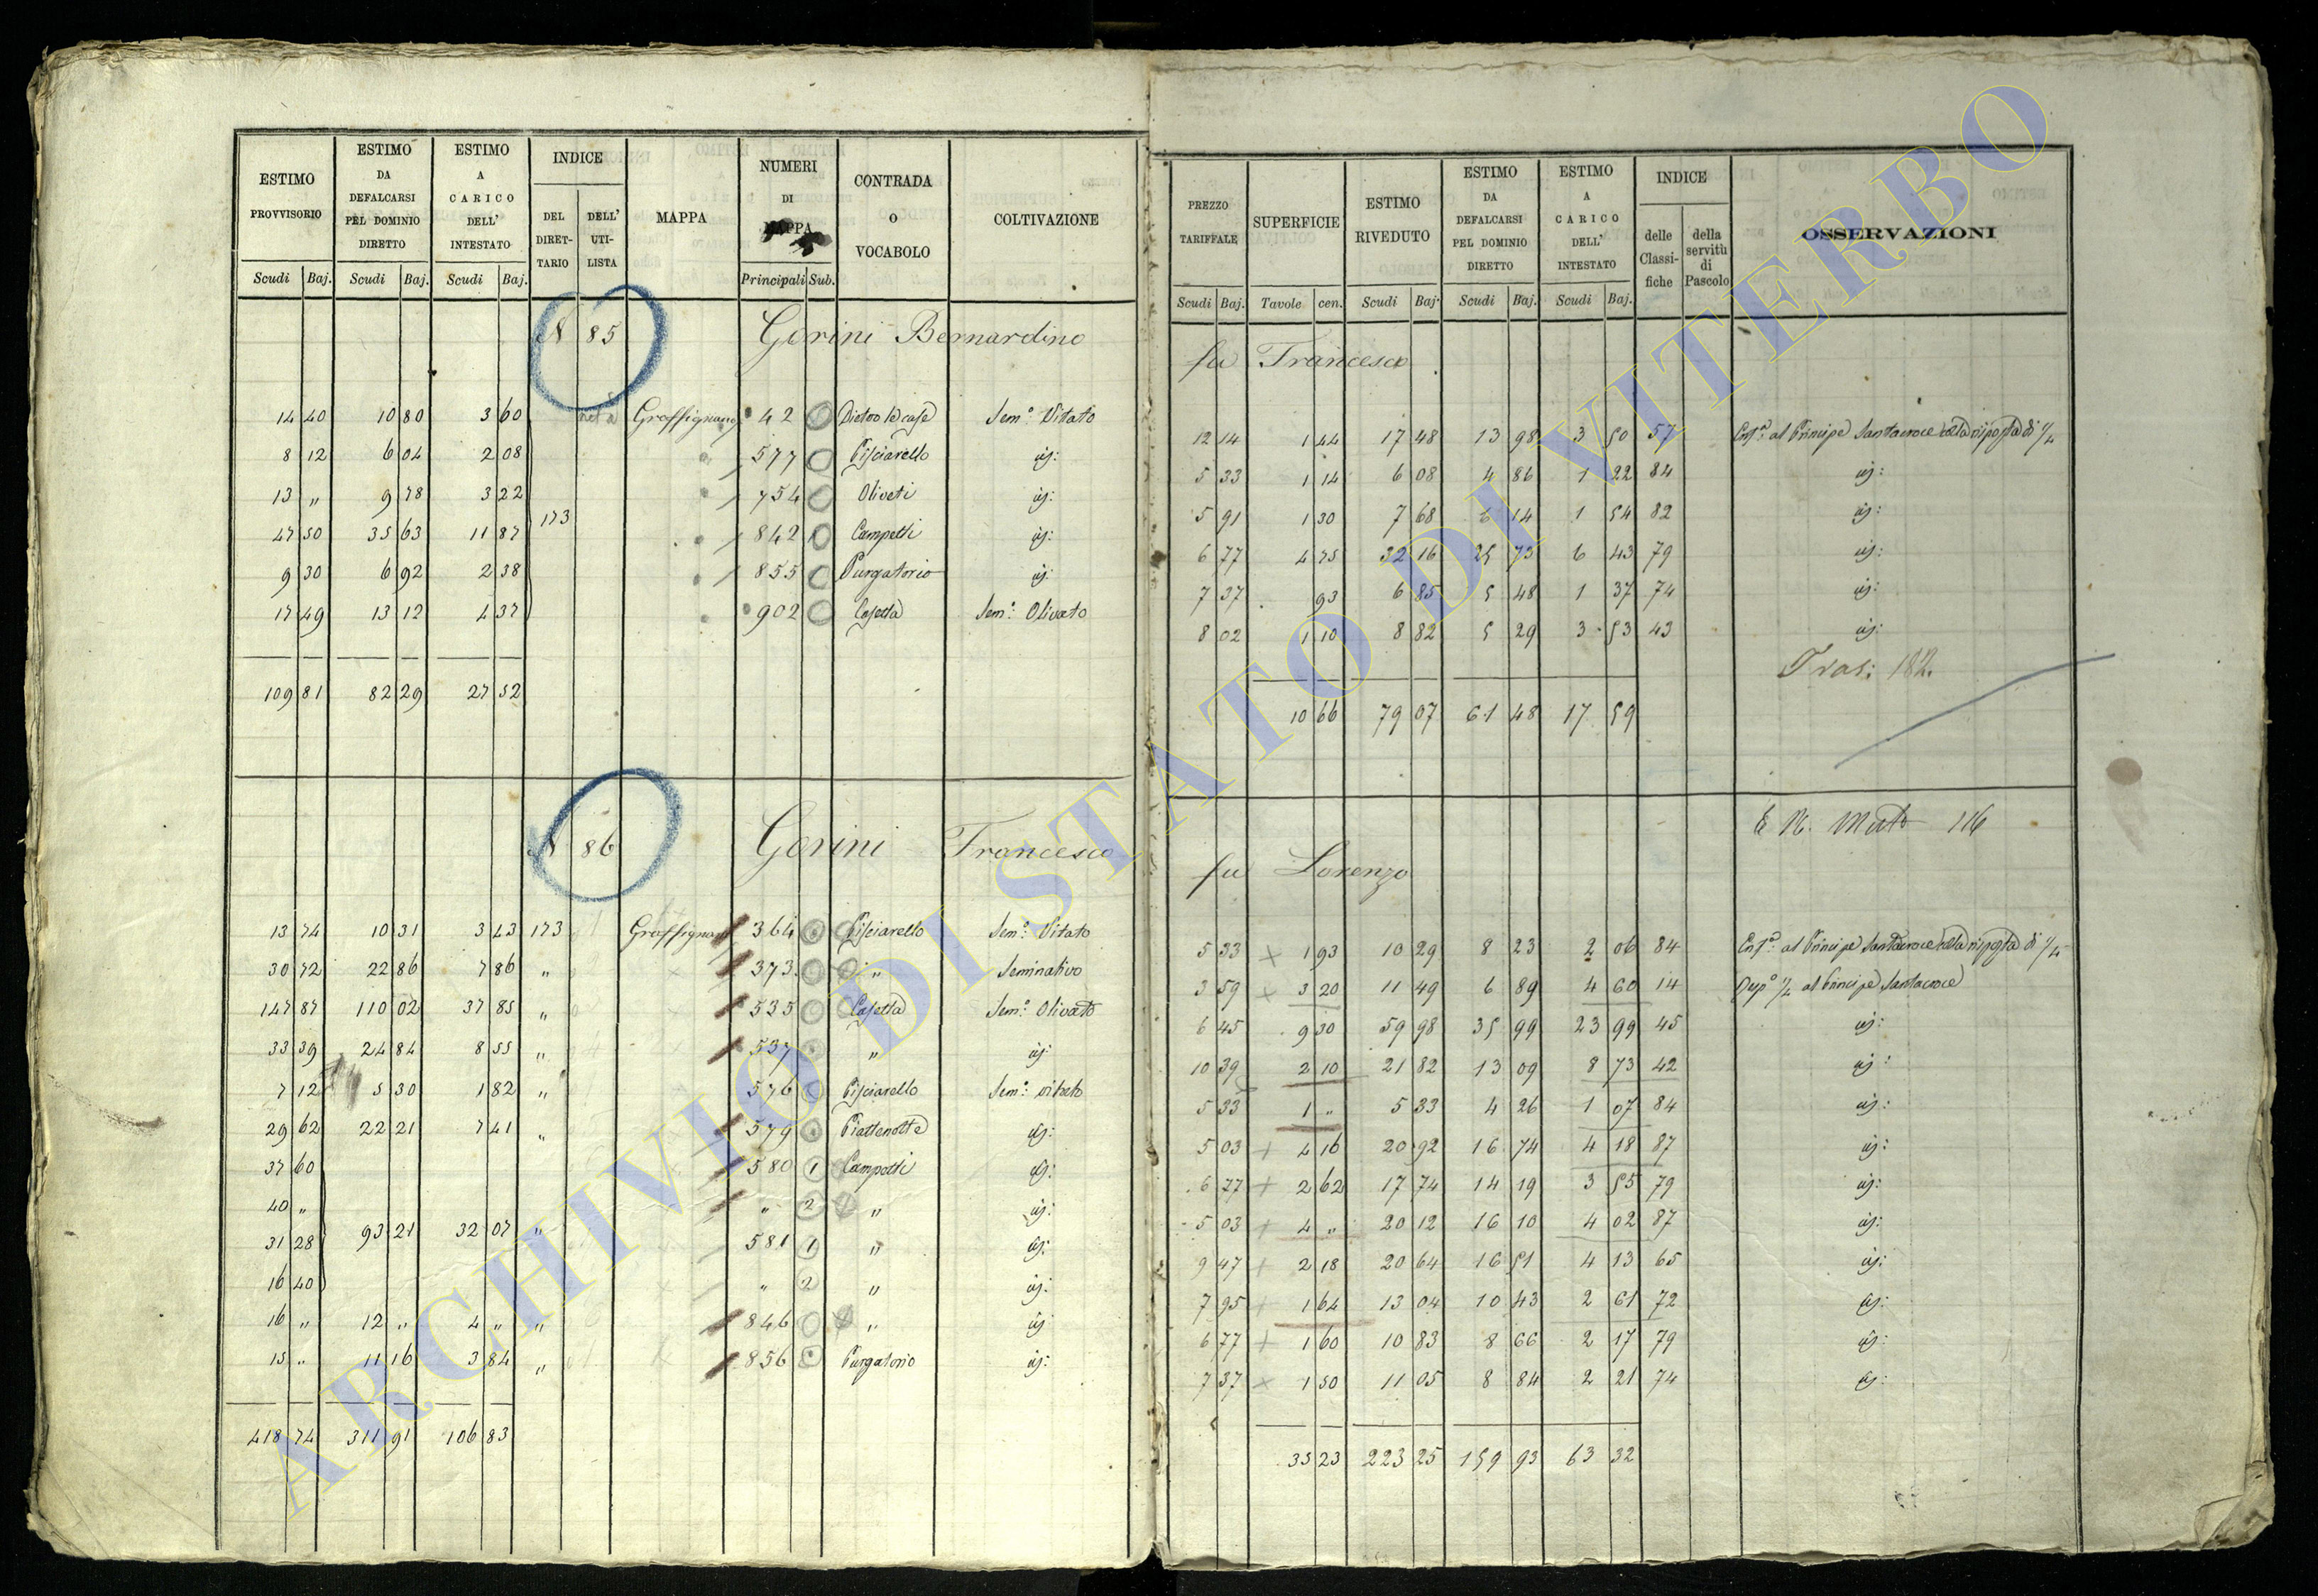 ESTIMO PROVVISORIO | ESTIMO DA DEFALCARSI PEL DOMINIO DIRETTO | ESTIMO A CARICO DELL' INTESTATO | INDICE | MAPPA | NUMERI DI MAPPA | CONTRADA O VOCABOLO | COLTIVAZIONE
DEL DIRETTARIO | DELL' UTILISTA
Scudi Baj. | Scudi Baj. | Scudi Baj. | Principali Sub.
N 85 Gorini Bernardino
14 40 | 10 80 | 3 60 | Graffignano | 42 | Dietro le case | Sem.o Vitato
8 12 | 6 04 | 2 08 | 577 | Pisciarello | id:
13 „ | 9 78 | 3 22 | 754 | Oliveti | id:
173
47 50 | 35 63 | 11 87 | 842 | Campetti | id:
9 30 | 6 92 | 2 38 | 855 | Purgatorio | id:
17 49 | 13 12 | 4 37 | 902 | Casetta | Sem.o Olivato
109 81 | 82 29 | 27 52
N 86 Gorini Francesco
13 74 | 10 31 | 3 43 | 173 | Graffignano | 364 | Pisciarello | Sem.o Vitato
30 72 | 22 86 | 7 86 | „ | 373 | „ | Seminativo
147 87 | 110 02 | 37 85 | „ | 535 | Casetta | Sem.o Olivato
33 39 | 24 84 | 8 55 | „ | 537 | „ | id:
7 12 | 5 30 | 1 82 | „ | 576 | Pisciarello | Sem.o vitato
29 62 | 22 21 | 7 41 | „ | 579 | Piattenotte | id:
37 60 | 580 | 1 | Campetti | id:
40 „ | „ | 2 | „ | id:
31 28 | 93 21 | 32 07 | „ | 581 | 1 | „ | id:
16 40 | „ | 2 | „ | id:
16 „ | 12 „ | 4 „ | „ | 846 | „ | id:
15 „ | 11 16 | 3 84 | „ | 856 | Purgatorio | id:
418 74 | 311 91 | 106 83
PREZZO TARIFFALE | SUPERFICIE | ESTIMO RIVEDUTO | ESTIMO DA DEFALCARSI PEL DOMINIO DIRETTO | ESTIMO A CARICO DELL' INTESTATO | INDICE | OSSERVAZIONI
delle Classifiche | della servitù di Pascolo
Scudi Baj. | Tavole cen. | Scudi Baj. | Scudi Baj. | Scudi Baj.
fu Francesco
12 14 | 1 44 | 17 48 | 13 98 | 3 50 | 57 | Enf.a al Principe Santacroce colla risposta di 1/4
5 33 | 1 14 | 6 08 | 4 86 | 1 22 | 84 | id:
5 91 | 1 30 | 7 68 | 6 14 | 1 54 | 82 | id:
6 77 | 4 75 | 32 16 | 25 73 | 6 43 | 79 | id:
7 37 | 93 | 6 85 | 5 48 | 1 37 | 74 | id:
8 02 | 1 10 | 8 82 | 5 29 | 3 53 | 43 | id:
Tras: 182.
10 66 | 79 07 | 61 48 | 17 59
116
fu Lorenzo
5 33 | 1 93 | 10 29 | 8 23 | 2 06 | 84 | Enf.a al Principe Santacroce colla risposta di 1/4
3 59 | 3 20 | 11 49 | 6 89 | 4 60 | 14 | 1/4 al Principe Santacroce
6 45 | 9 30 | 59 98 | 35 99 | 23 99 | 45 | id:
10 39 | 2 10 | 21 82 | 13 09 | 8 73 | 42 | id:
5 33 | 1 „ | 5 33 | 4 26 | 1 07 | 84 | id:
5 03 | 4 16 | 20 92 | 16 74 | 4 18 | 87 | id:
6 77 | 2 62 | 17 74 | 14 19 | 3 55 | 79 | id:
5 03 | 4 „ | 20 12 | 16 10 | 4 02 | 87 | id:
9 47 | 2 18 | 20 64 | 16 51 | 4 13 | 65 | id:
7 95 | 1 64 | 13 04 | 10 43 | 2 61 | 72 | id:
6 77 | 1 60 | 10 83 | 8 66 | 2 17 | 79 | id:
7 37 | 1 50 | 11 05 | 8 84 | 2 21 | 74 | id:
35 23 | 223 25 | 159 93 | 63 32
ARCHIVIO DI STATO DI VITERBO